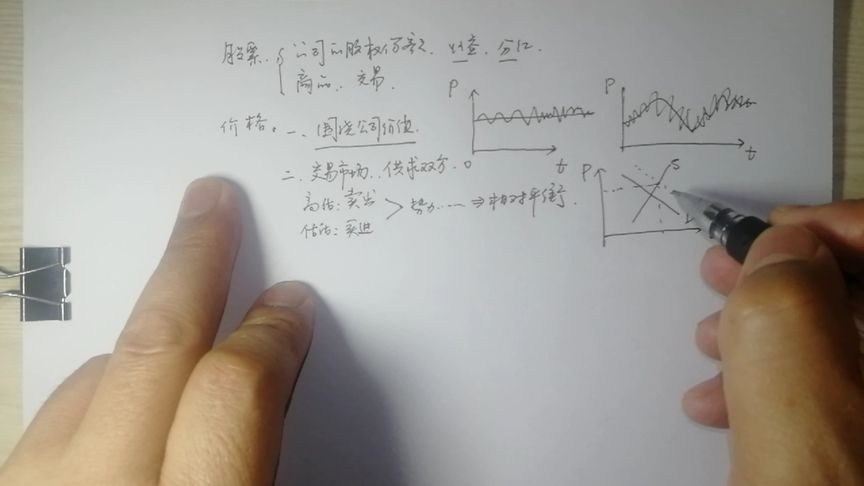 股票. { 公司的股权份额. 检查. 分红.
商品. 交易.
价格. 一. 围绕公司价值.
二. 交易市场. 供求双方.
高估: 卖出
低估: 买进 > 势力 …… ⇒ 相对平衡.
P
t
P
t
P
S
0